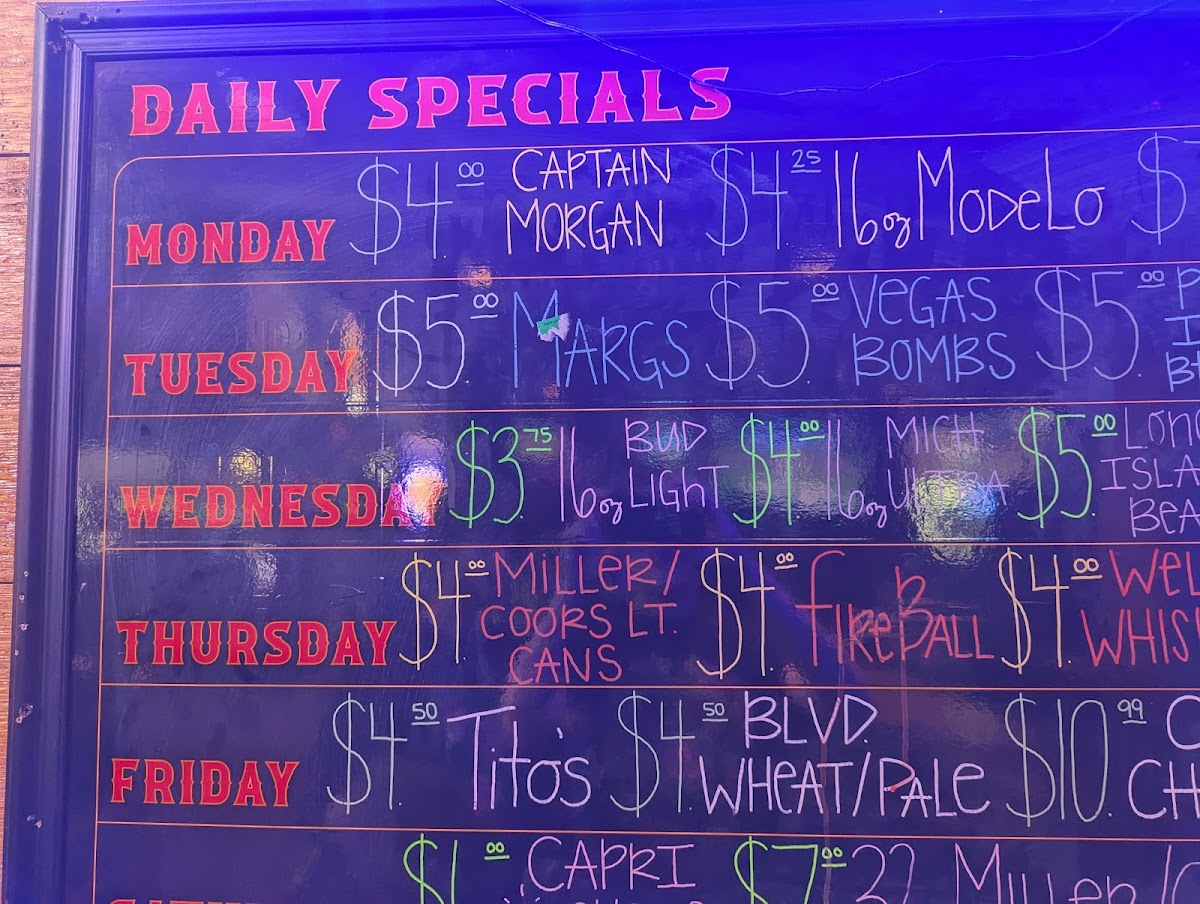 DAILY SPECIALS
MONDAY $4.00 CAPTAIN MORGAN $4.25 16oz MODeLo
TUESDAY $5.00 MARGS $5.00 VeGAS BOMBS $5.00
WEDNESDAY $3.75 16oz BUD LIGhT $4.00 16oz MICH ULTRA $5.00 LonG ISLA BEA
THURSDAY $4.00 MILLeR/ COORS LT. CANS $4.00 fIReBALL $4.00 WeL WHIS
FRIDAY $4.50 Tito's $4.50 BLVD. WHeAT/PALe $10.99 CH
CAPRI $7.00 32 MILLeR/